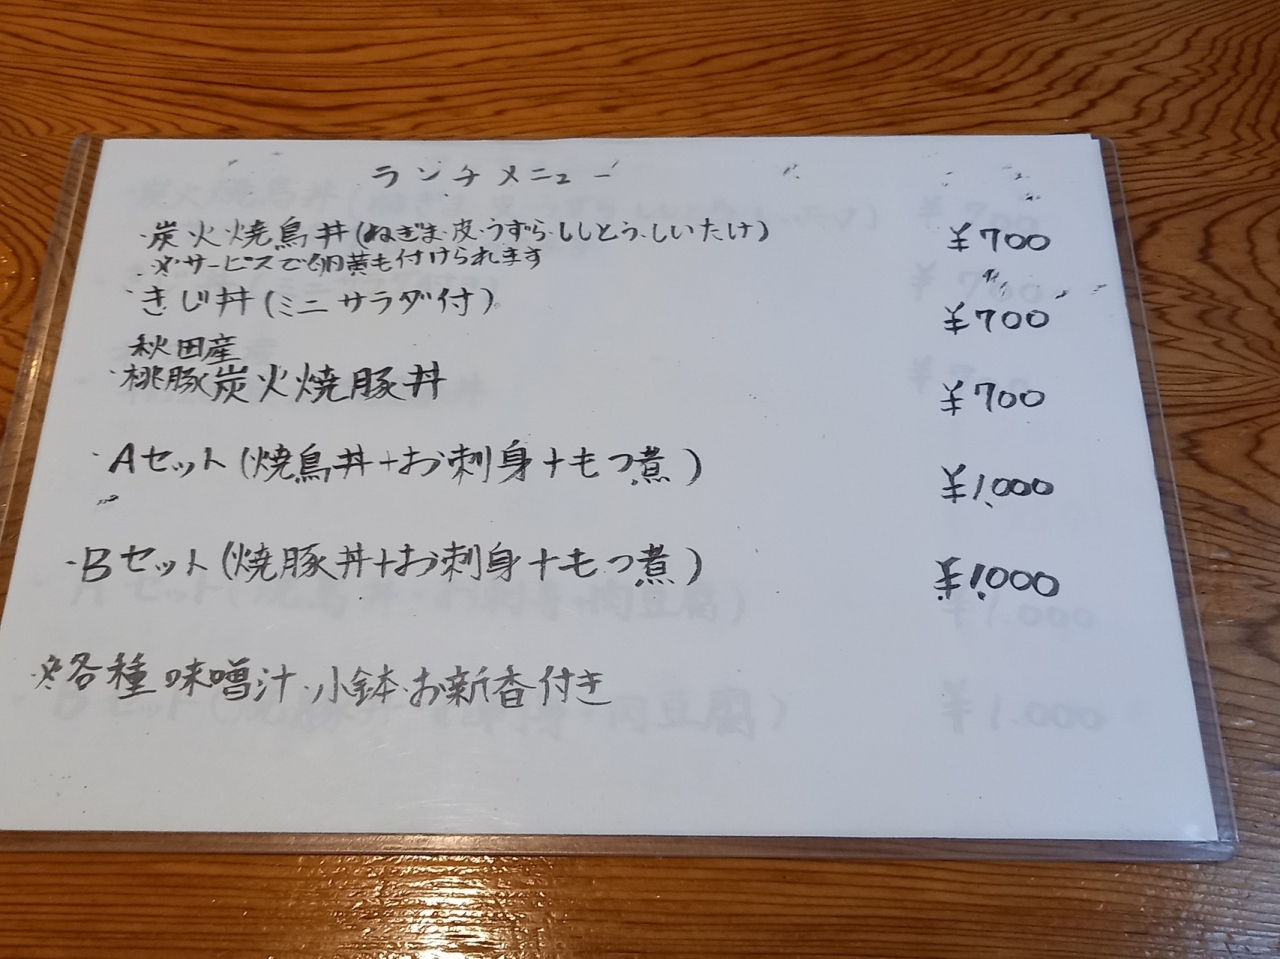 ランチメニュー
・炭火焼鳥丼(ねぎま・皮・うずら・ししとう・しいたけ) ¥700
※サービスで卵黄も付けられます
・きじ丼(ミニサラダ付) ¥700
秋田産
・桃豚炭火焼豚丼 ¥700
・Aセット(焼鳥丼+お刺身+もつ煮) ¥1,000
・Bセット(焼豚丼+お刺身+もつ煮) ¥1,000
※各種味噌汁・小鉢・お新香付き